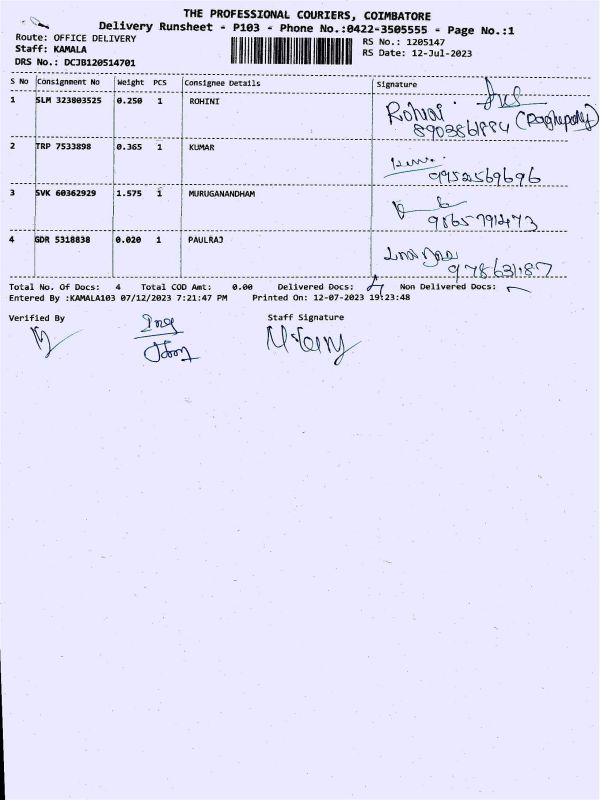 THE PROFESSIONAL COURIERS, COIMBATORE
Delivery Runsheet - P103 - Phone No.:0422-3505555 - Page No.:1
Route: OFFICE DELIVERY
RS No.: 1205147
Staff: KAMALA
RS Date: 12-Jul-2023
DRS No.: DCJB120514701
S No Consignment No Weight PCS Consignee Details Signature
1 SLM 323803525 0.250 1 ROHINI
2 TRP 7533898 0.365 1 KUMAR
9952569696
3 SVK 60362929 1.575 1 MURUGANANDHAM
4 GDR 5318838 0.020 1 PAULRAJ
Total No. Of Docs: 4 Total COD Amt: 0.00 Delivered Docs: 4 Non Delivered Docs:
Entered By :KAMALA103 07/12/2023 7:21:47 PM Printed On: 12-07-2023 19:23:48
Verified By Staff Signature